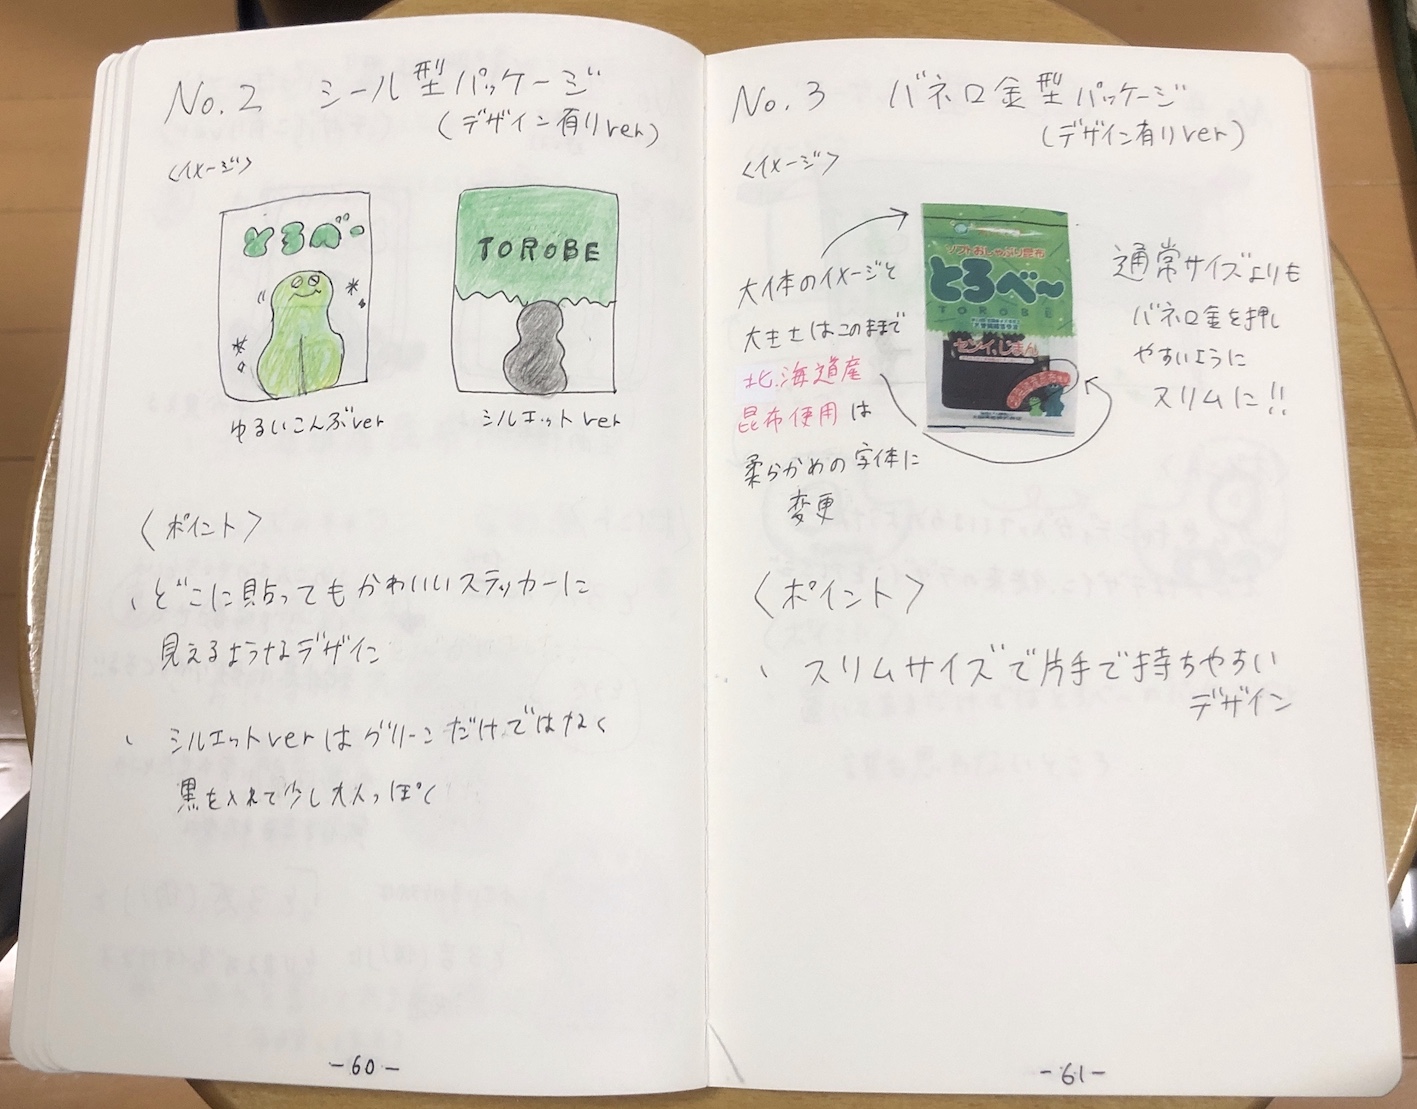 No.2 シール型パッケージ
(デザイン有りver)
〈イメージ〉
とろべー
TOROBE
ゆるいこんぶver
シルエットver
〈ポイント〉
、どこに貼ってもかわいいステッカーに
見えるようなデザイン
、シルエットverはグリーンだけではなく
黒を入れて少し大人っぽく
-60-
No.3 バネ口金型パッケージ
(デザイン有りver)
〈イメージ〉
大体のイメージと
大きさはこのままで
北海道産
昆布使用は
柔らかめの字体に
変更
ソフトおしゃぶり昆布
とろべ〜
TOROBE
センイ、じまん
通常サイズよりも
バネ口金を押し
やすいように
スリムに!!
〈ポイント〉
、スリムサイズで片手で持ちやすい
デザイン
-61-